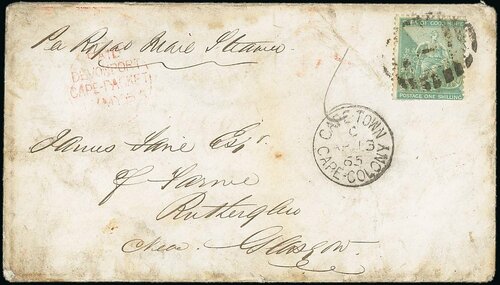 Per Royal Mail Steamer
DEVONPORT
CAPE-PACKET
OF GOOD HOPE
POSTAGE ONE SHILLING
CAPE TOWN
C
13
65
CAPE-COLONY
James Esqr
of
Rutherglen
Near Glasgow